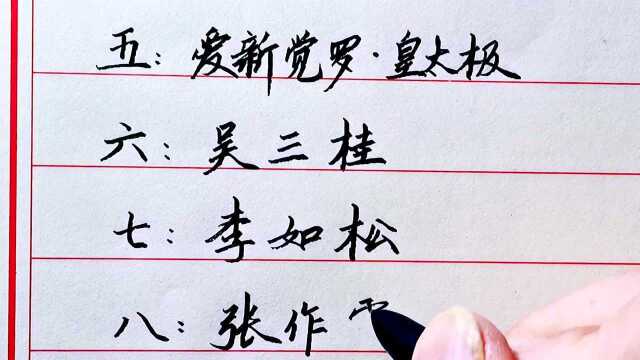 五：爱新觉罗·皇太极
六：吴三桂
七：李如松
八：张作